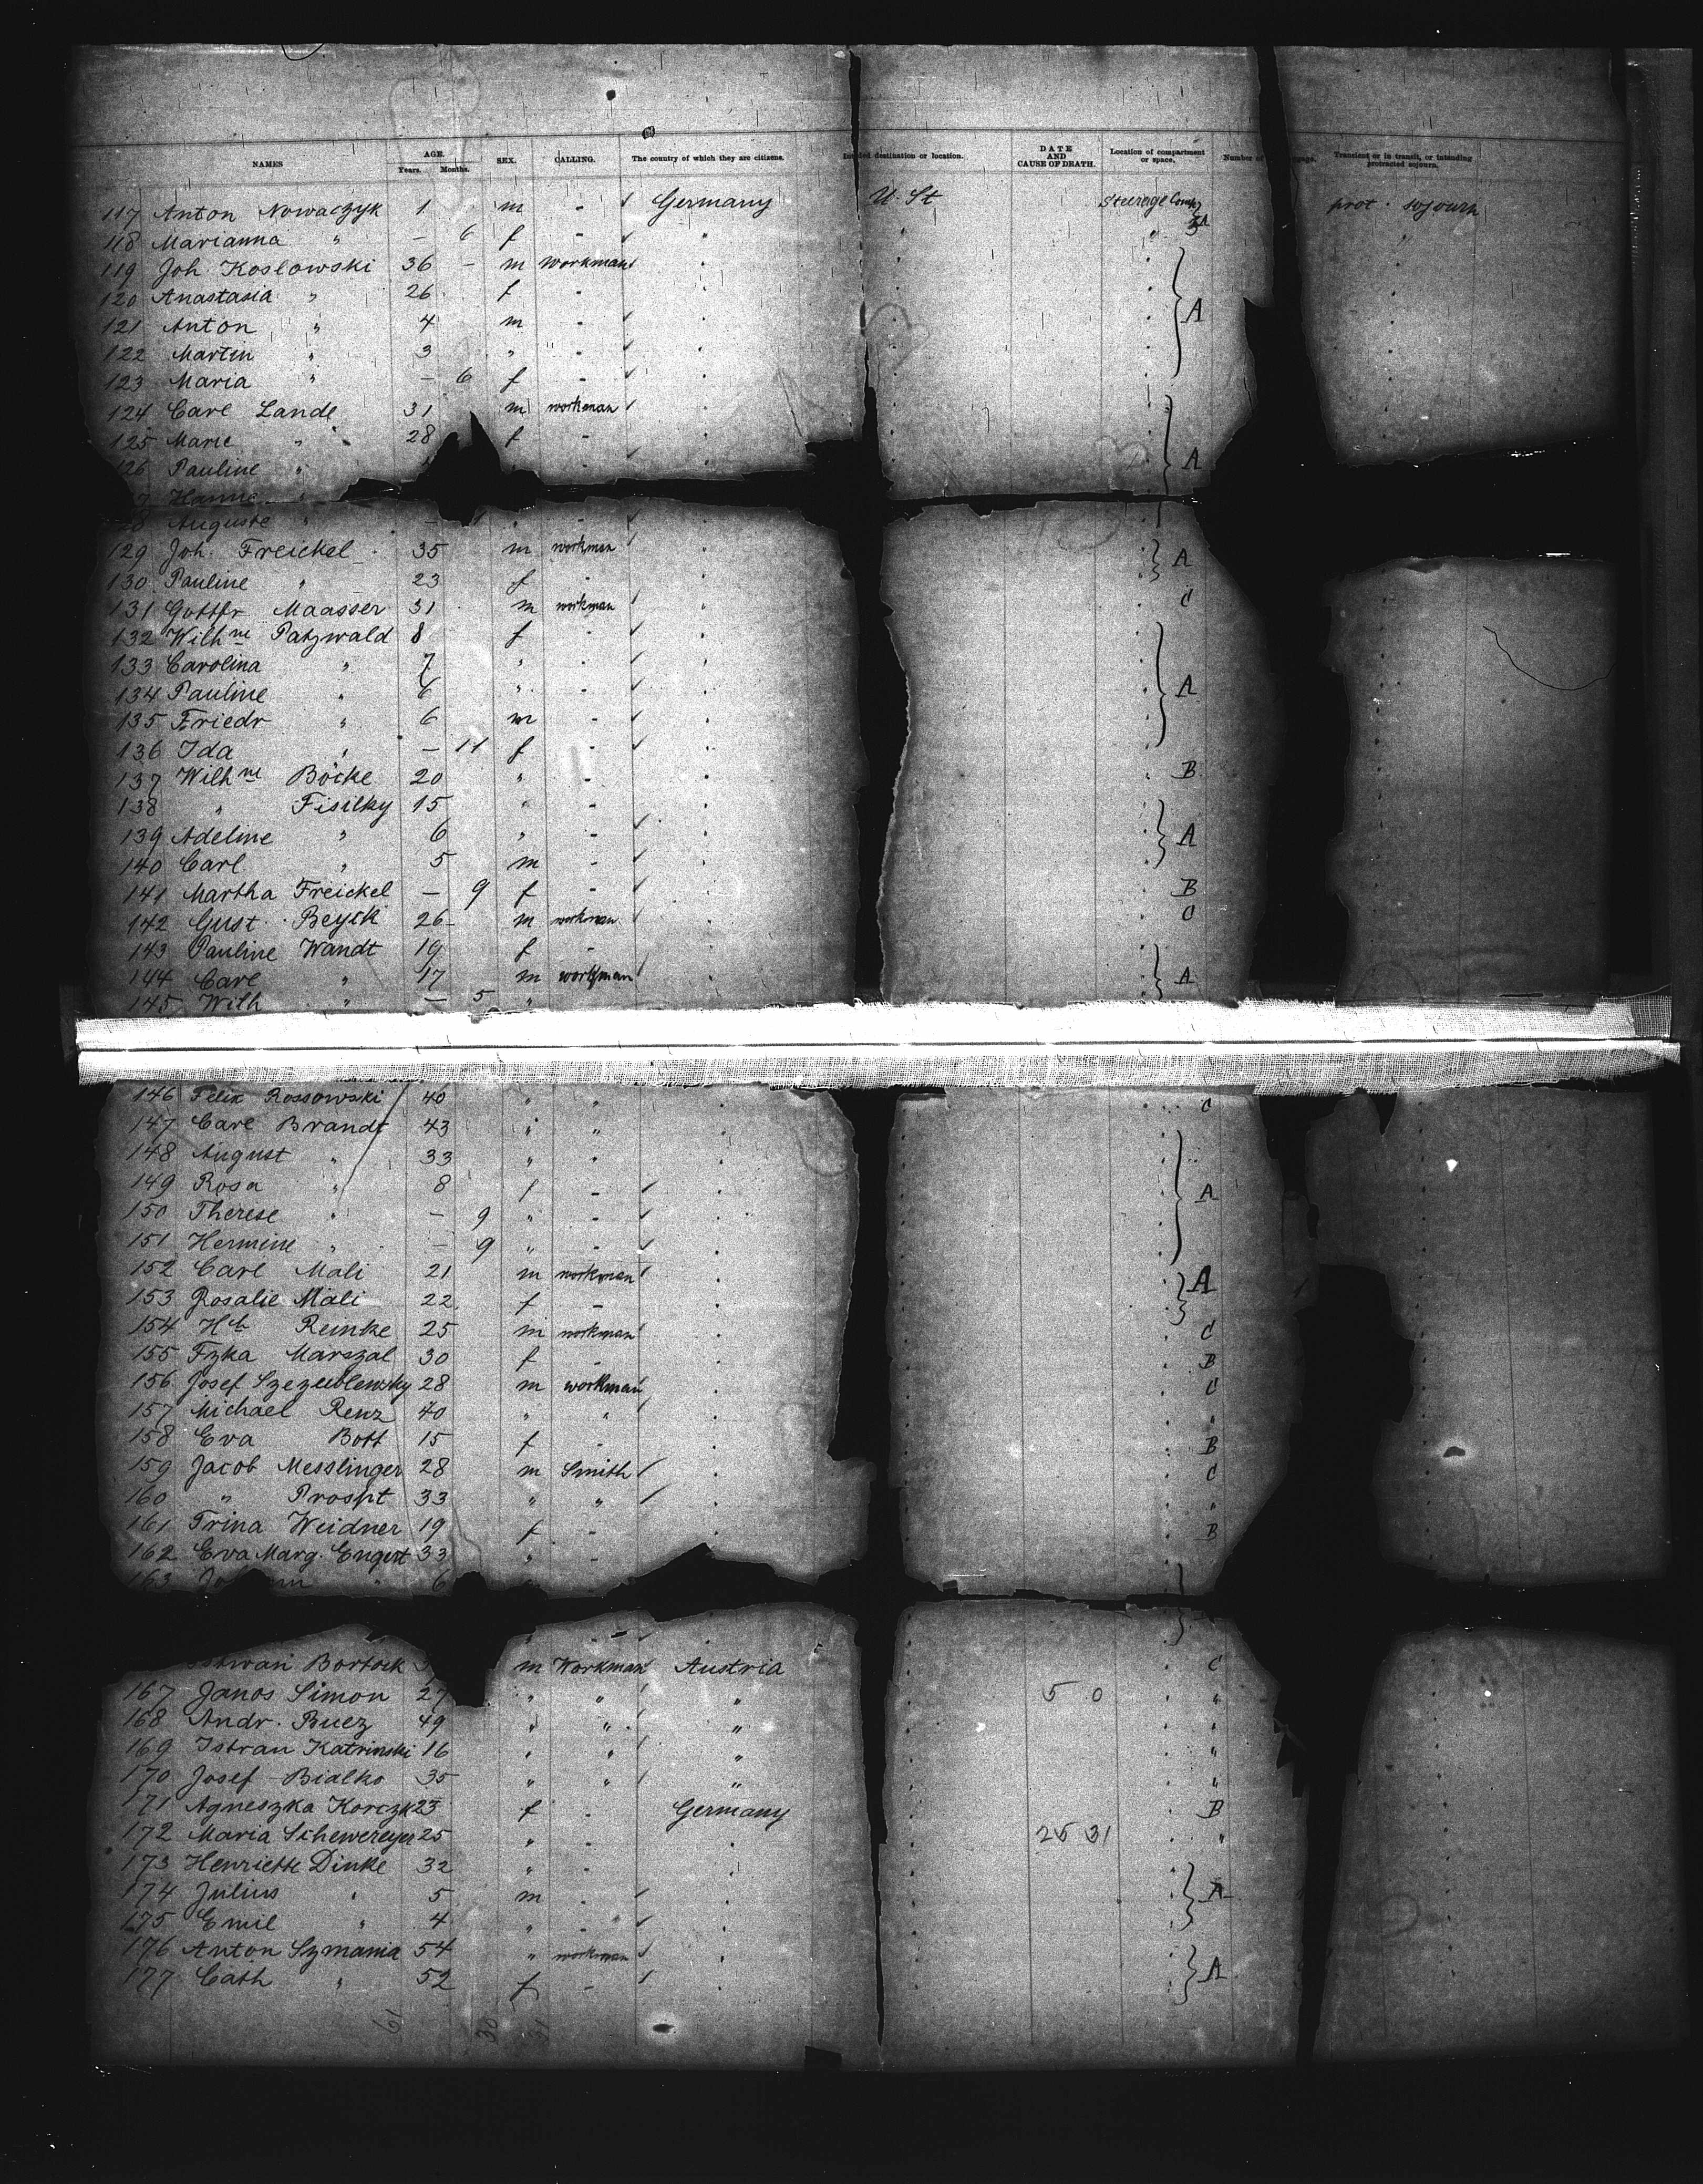 NAMES AGE. Years. Months. SEX. CALLING. The country of which they are citizens. destination or location. DATE AND CAUSE OF DEATH. Location of compartment or space. Number of Transient or in transit, or intending protracted sojourn.
117 Anton Nowaczyk 1 m - ✓ Germany U. St Steerage prot. sojourn
118 Marianna " - 6 f - ✓ " " "
119 Joh Koslowski 36 - m Workman ✓ "
120 Anastasia " 26 f - "
121 Anton " 4 m - ✓ " A
122 Martin " 3 " - ✓ "
123 Maria " - 6 f - ✓ "
124 Carl Lande 31 m workman ✓ "
125 Marie " 28 f - "
126 Pauline " ✓ " A
Hanne "
Auguste " - - ✓
129 Joh. Freickel 35 m workman ✓ " A
130 Pauline " 23 f -
131 Gottfr Maasser 31 m workman ✓ " C
132 Wilhne Patzwald 8 f - ✓ "
133 Carolina " 7 " - ✓ "
134 Pauline " 6 " - ✓ " A
135 Friedr " 6 m - ✓ "
136 Ida " - 11 f - ✓ "
137 Wilhne Böcke 20 " - " B
138 " Fisilky 15 " - "
139 Adeline " 6 " - ✓ " A
140 Carl " 5 m - ✓ "
141 Martha Freickel - 9 f - ✓ " B
142 Gust. Beyck 26 m workman ✓ " C
143 Pauline Wandt 19 f - "
144 Carl " 17 m workman ✓ " A
145 Wilh " - 5 "
146 Felix Rossowski 40 " " C
147 Carl Brandt 43 " " "
148 August " 33 " " "
149 Rosa " 8 f - ✓ " A
150 Therese " - 9 " - ✓ "
151 Hermine " - 9 " - ✓ "
152 Carl Mali 21 m workman ✓ " A
153 Rosalie Mali 22 f - "
154 Hch Reinke 25 m workman ✓ " C
155 Fzka Marszal 30 f - " B
156 Josef 28 m workman " C
157 Michael Renz 40 " " ✓ " "
158 Eva Bott 15 f - " B
159 Jacob Messlinger 28 m Smith ✓ " C
160 " Prospt 33 " " ✓ " "
161 Trina Weidner 19 f - " B
162 Eva Marg. Engert 33 " -
163 " 6
" - ✓
Bortock m Workman ✓ Austria C
167 Janos Simon 27 " " ✓ " 5 0 "
168 Andr. Buez 49 " " ✓ " "
169 Istvan Katrinski 16 " " ✓ " "
170 Josef Bialko 35 " " ✓ " "
171 Agneszka Korczk 23 f - Germany B
172 Maria 25 " - " 25 31 "
173 Henriette Dinke 32 " - "
174 Julius " 5 m - ✓ " A
175 Emil " 4 " - ✓ "
176 Anton Szmania 54 " workman ✓ "
177 Cath " 52 f - ✓ A
61 30 31